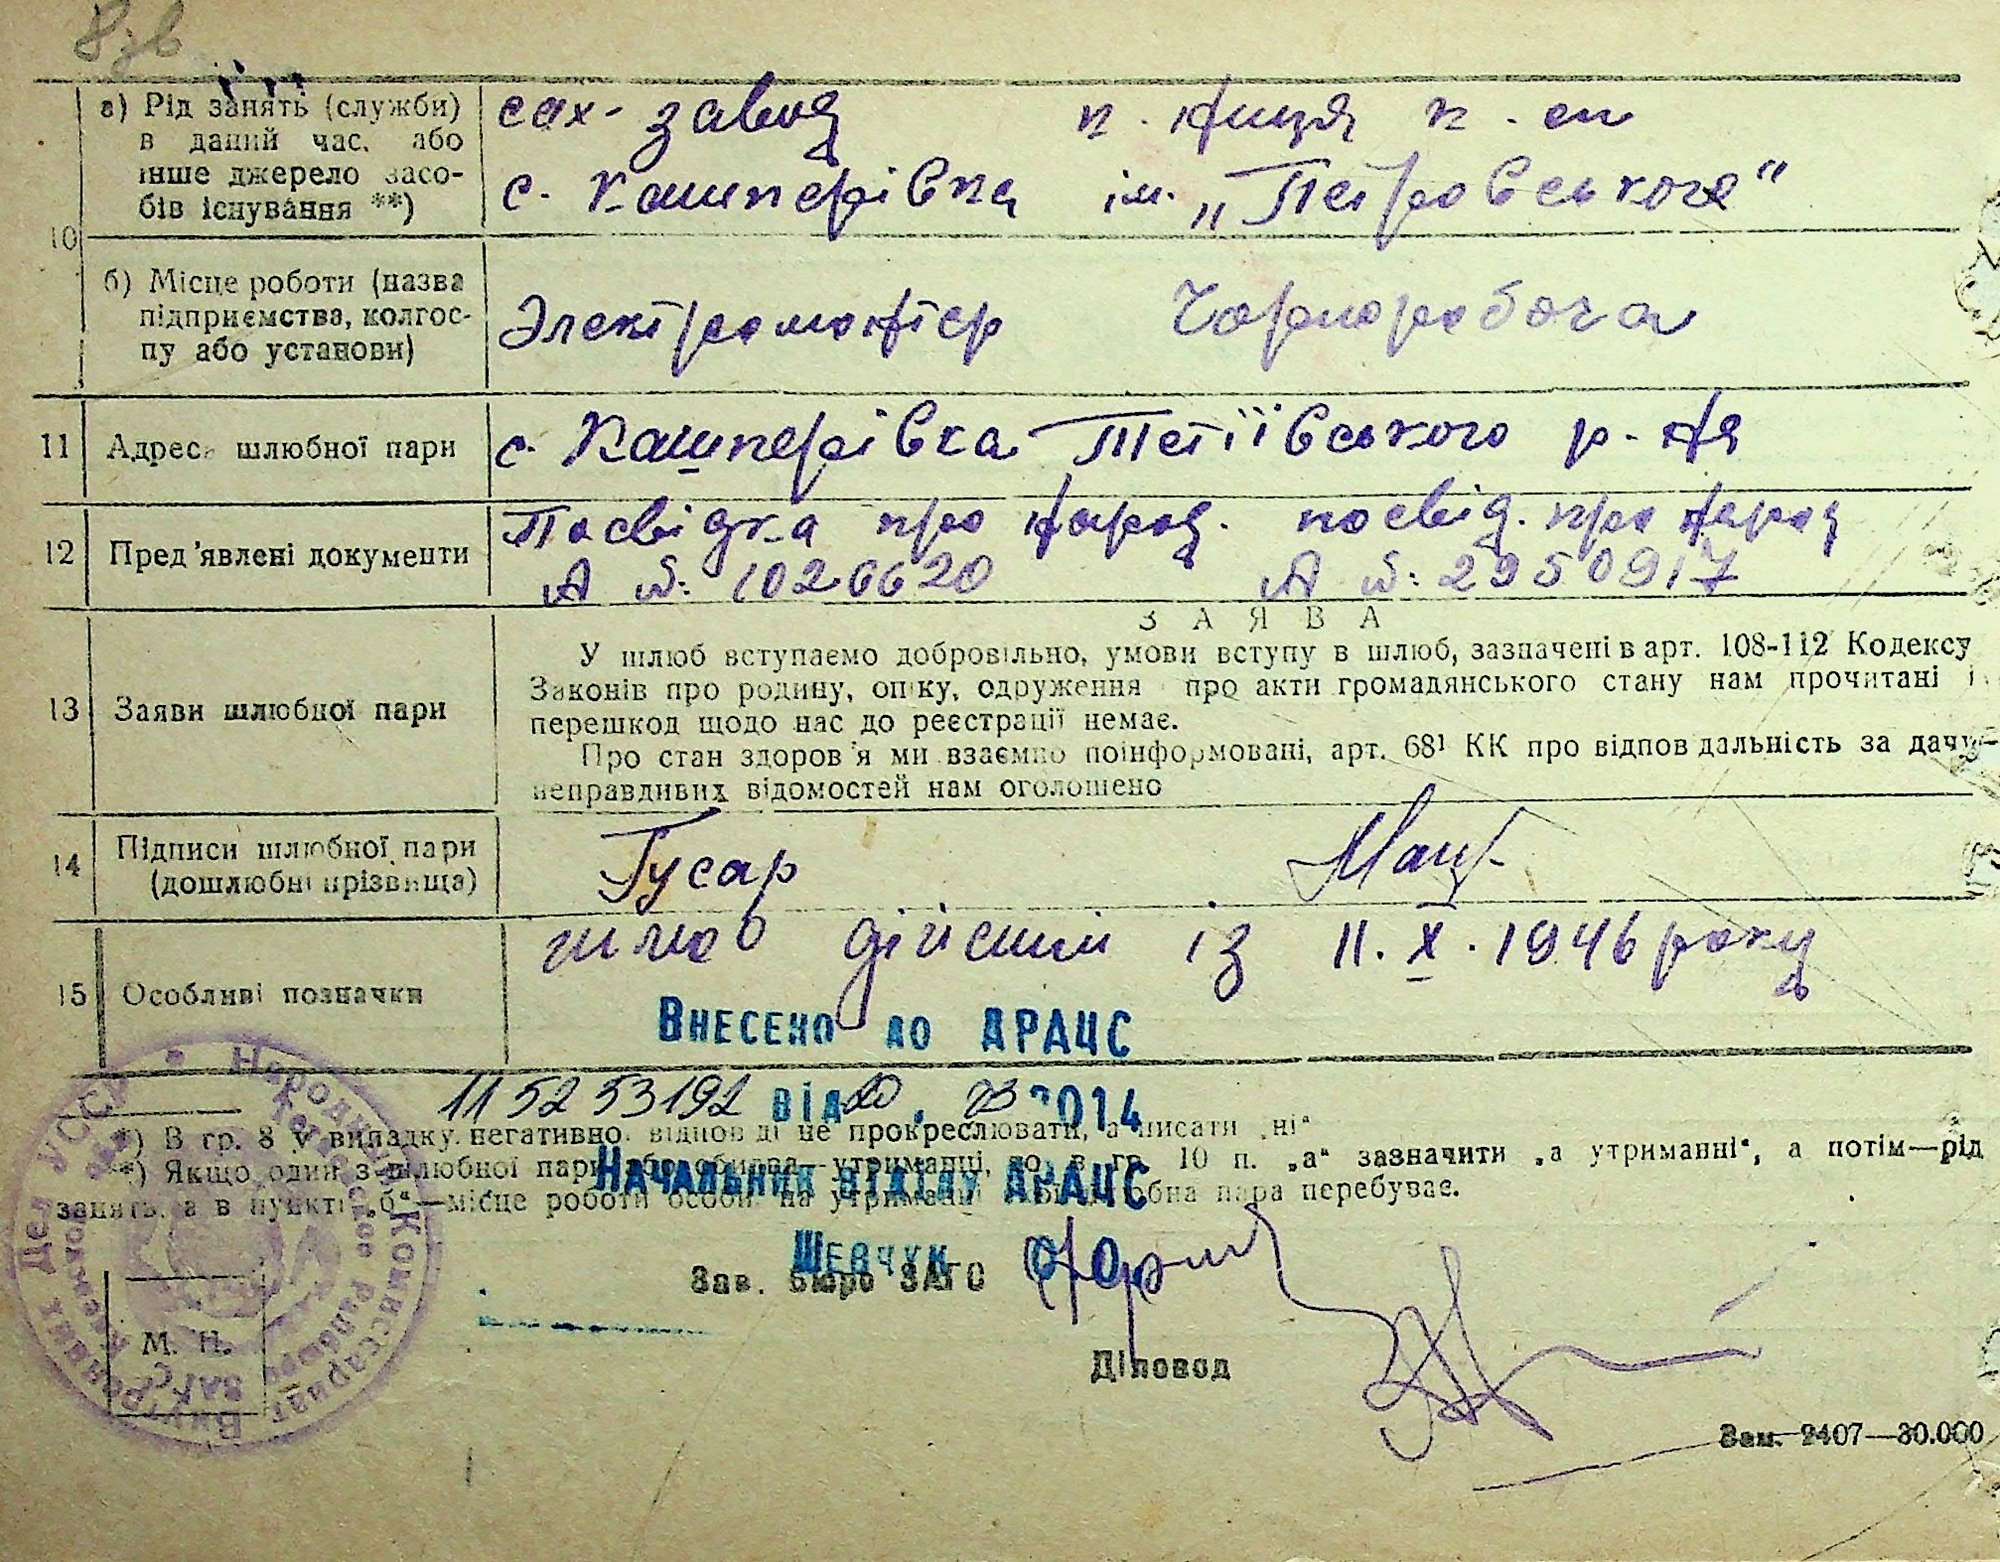 8 зв
10
а) Рід занять (служби) в даний час, або інше джерело засобів існування **)
сах- завод
с. Кашперівка
к. ниця к. сп
ім. „Петровського"
б) Місце роботи (назва підприємства, колгоспу або установи)
Электромонтер
Чорноробоча
11 Адреса шлюбної пари
с. Кашперівка Тетіївського р-ня
12 Пред'явлені документи
Посвідка про народ. посвід. про народ
А №: 1026620 А №: 2950917
13 Заяви шлюбної пари
ЗАЯВА
У шлюб вступаємо добровільно, умови вступу в шлюб, зазначені в арт. 108-112 Кодексу
Законів про родину, опіку, одруження про акти громадянського стану нам прочитані і
перешкод щодо нас до реєстрації немає.
Про стан здоров'я ми взаємно поінформовані, арт. 68¹ КК про відповідальність за дачу
неправдивих відомостей нам оголошено
14 Підписи шлюбної пари (дошлюбні прізвища)
Гусар
15 Особливі позначки
шлюб дійсний із 11. X. 1946 року
Внесено до ДРАЦС
1152 53192 від 20. 03 2014
*) В гр. 8 у випадку негативної відповіді не прокреслювати, а писати „ні"
**) Якщо один з шлюбної пари або обидва—утриманці, то в гр. 10 п. „а" зазначити „а утриманні", а потім—рід
занять, а в пункті „б"—місце роботи особи на утриманні шлюбна пара перебуває.
Начальник відділу ДРАЦС
Шевчук О.О.
Зав. бюро ЗАГС
Діловод
М. Н.
Народный Комиссариат Внутренних Дел УССР
Зам. 2407—30.000